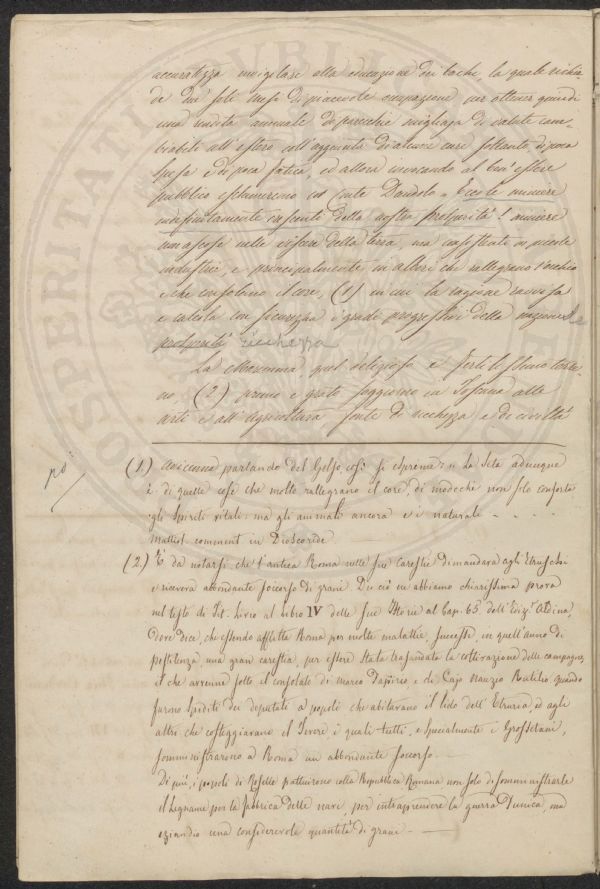 PROSPERITATI PUBLI
accuratezza invigilare alla educazione dei bachi, la quale richie-
de due soli mesi di piacevole occupazione per ottener quindi
una rendita annuale di parecchie migliaja di valute cam-
biabili all'estero coll'aggiunta di alcune cure soltanto, di poca
spesa e di poca fatica, ed allora invocando al ben'essere
pubblico esclameremo col Conte Dandolo " Ecco le miniere
indefinitamente crescenti della nostra prosperità! miniere
non ascose nelle viscere della terra, ma consistenti in piccole
industrie, e principalmente in alberi che rallegrano l'occhio
e che consolano il core, (1) in cui la ragione ravvisa
e calcola con sicurezza i gradi progressivi della nazionale
prosperità ricchezza
La Maremma, quel delizioso e fertilissimo terre-
no, (2) primo e grato soggiorno in Toscana alle
arti e all'Agricoltura fonte di ricchezza e di civiltà
(1) Avicenna parlando del Gelso così si esprime: " La Seta adunque
è di quelle cose che molto rallegrano il core, di modochè non solo conforta
gli spiriti vitali: ma gli animali ancora e i naturali - . - . -
Mattiol. comment in Dioscoride
(2.) È da notarsi che l'antica Roma nelle sue carestie dimandava agli Etruschi
e riceveva abbondante soccorso di grani. Di ciò ne abbiamo chiarissima prova
nel testo di Tit. Livio al libro IV delle sue Istorie al Cap. 65 dell'Ediz.e Aldina,
dove dice, che essendo afflitta Roma per molte malattie, successe, in quell'anno di
pestilenza, una gran carestia, per essere stata trasandata la coltivazione delle campagne,
il che avvenne sotto il consolato di Marco Papirio e di Cajo Nauzio Rutilio, quando
furono spediti dei deputati a popoli che abitavano il lido dell'Etruria, ed agli
altri che costeggiavano il Tevere, i quali tutti, e specialmente i Grossetani,
somministrarono a Roma un abbondante soccorso. -
Di più, i popoli di Roselle pattuirono colla Repubblica Romana non solo di somministrarle
il Legname per la fabbrica delle navi, per intraprendere la guerra Punica, ma
eziandio una considerevole quantità di grani - . -